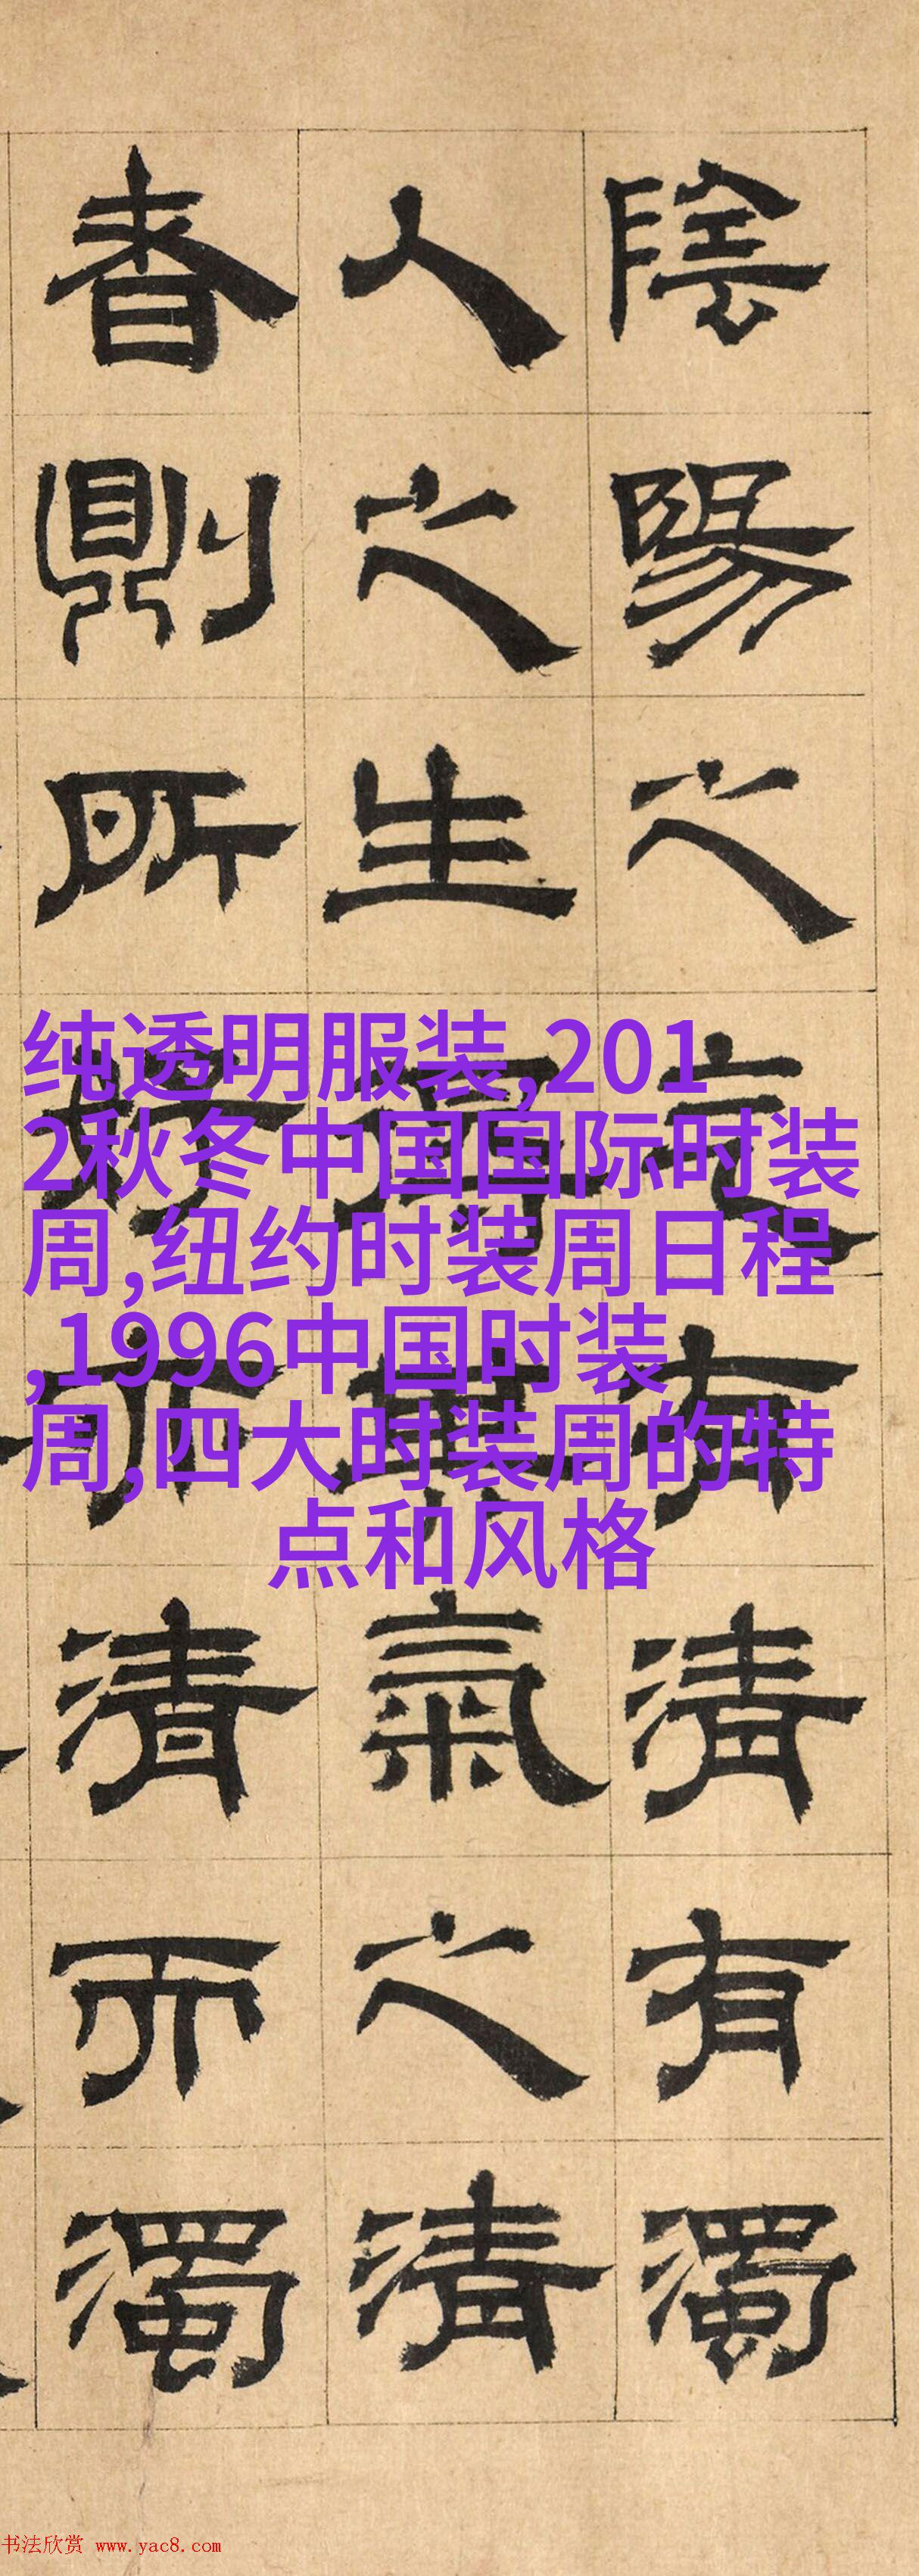 陰陽之有清有濁
人之生得其氣之清
者則所好亦清而濁
纯透明服装,201
2秋冬中国国际时装
周,纽约时装周日程
,1996中国时装
周,四大时装周的特
点和风格
书法欣赏 www.yac8.com